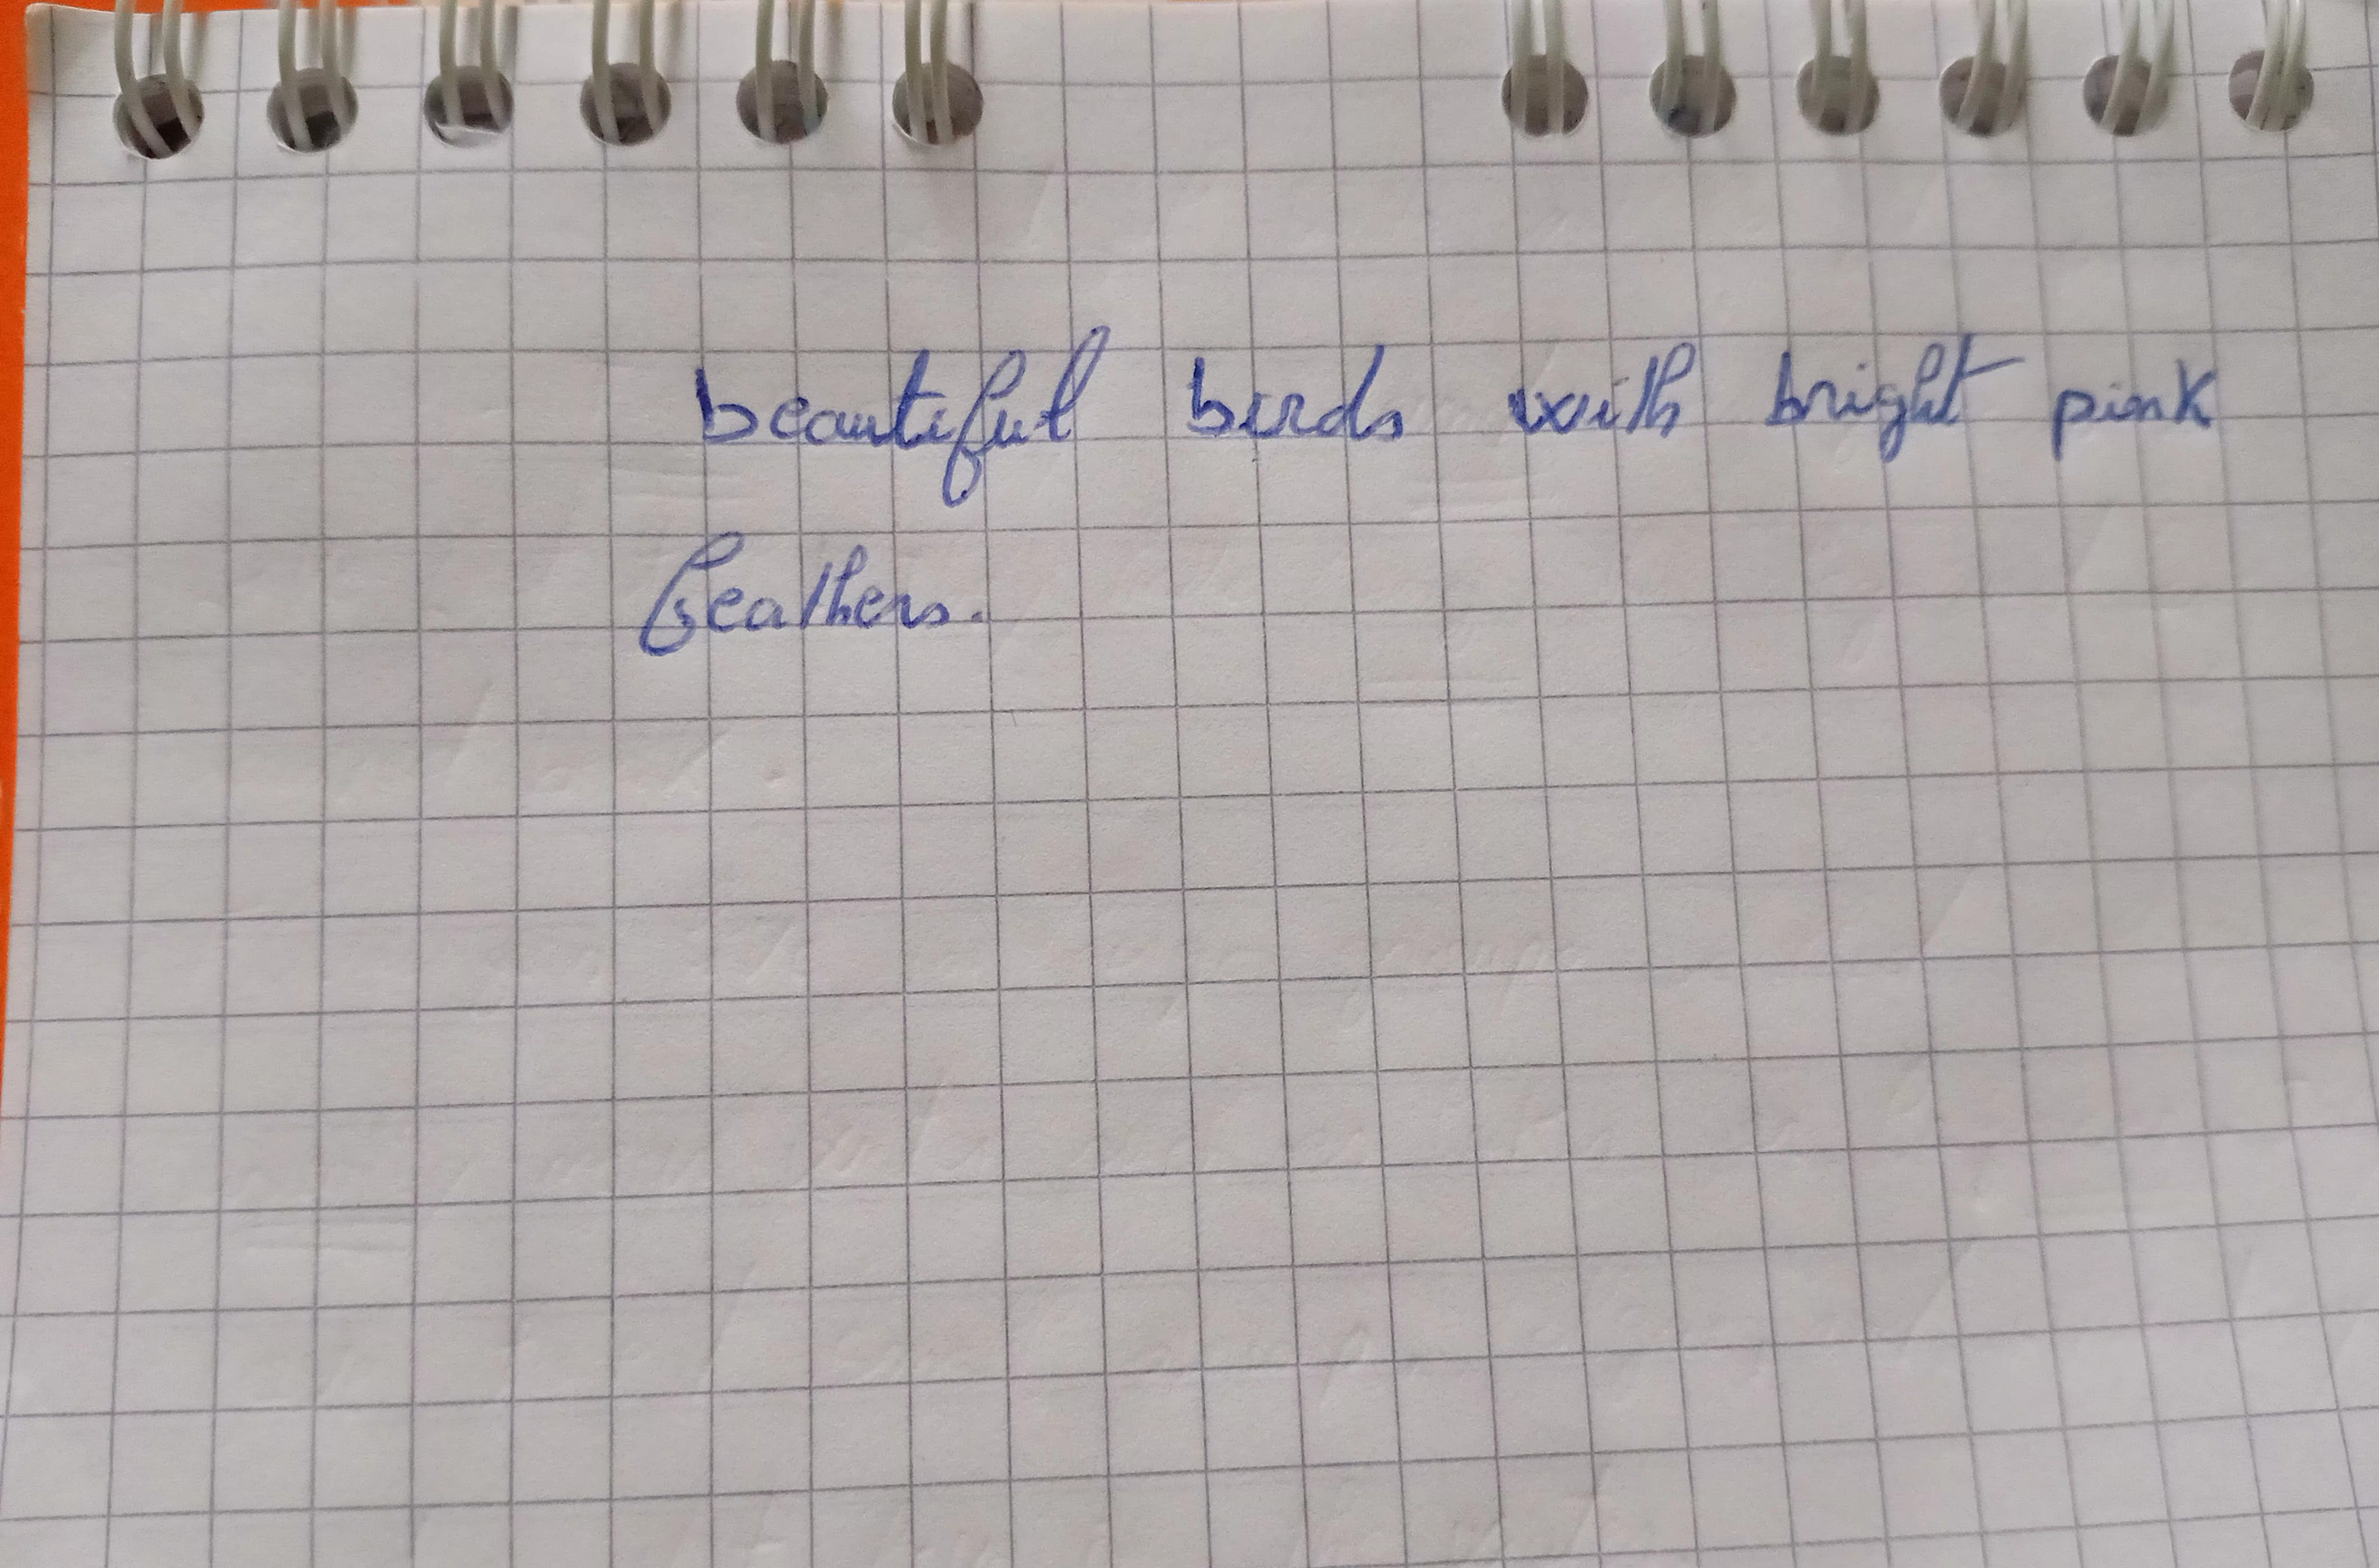 beautiful birds with bright pink
feathers.